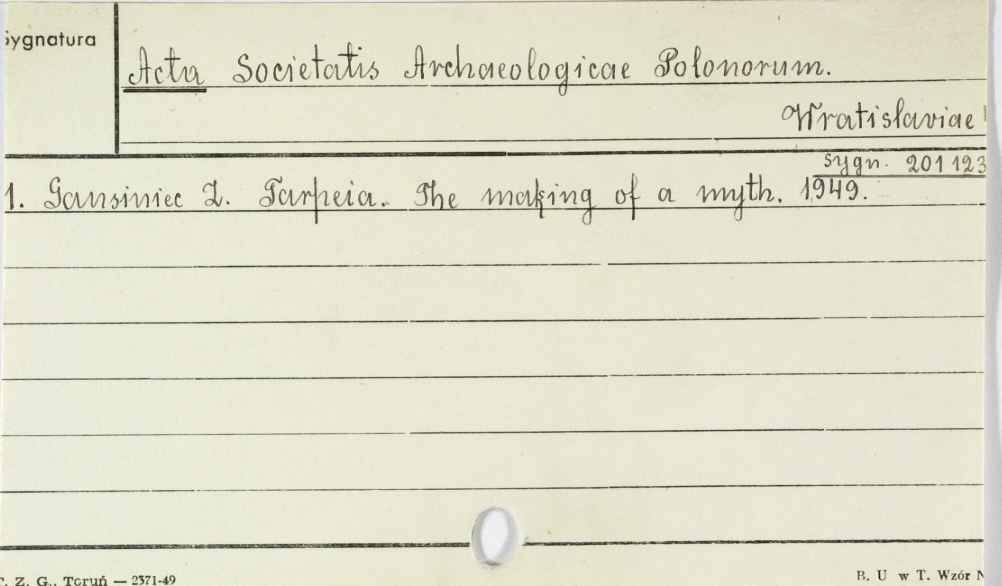 Sygnatura
Acta Societatis Archaeologicae Polonorum.
Wratislaviae
Sygn. 201 123
1. Gansiniec Z. Tarpeia. The making of a myth. 1949.
T. Z. G., Toruń — 2371-49
B. U w T. Wzór N